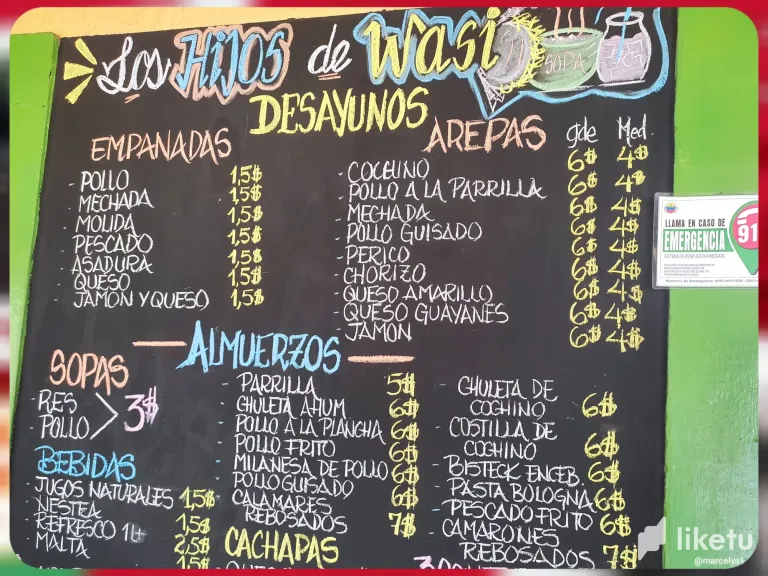 Los Hijos de Wasi
SOPA
DESAYUNOS
EMPANADAS
- POLLO 1,5$
- MECHADA 1,5$
- MOLIDA 1,5$
- PESCADO 1,5$
- ASADURA 1,5$
- QUESO 1,5$
- JAMON Y QUESO 1,5$
AREPAS gde Med.
- COCHINO 6$ 4$
- POLLO A LA PARRILLA 6$ 4$
- MECHADA 6$ 4$
- POLLO GUISADO 6$ 4$
- PERICO 6$ 4$
- CHORIZO 6$ 4$
- QUESO AMARILLO 6$ 4$
- QUESO GUAYANES 6$ 4$
- JAMON 6$ 4$
ALMUERZOS
SOPAS
- RES
- POLLO > 3$
BEBIDAS
JUGOS NATURALES 1,5$
- NESTEA 1,5$
- REFRESCO 1 Lt 2,5$
- MALTA 1,5$
- PARRILLA 5$
- CHULETA AHUM 6$
- POLLO A LA PLANCHA 6$
- POLLO FRITO 6$
- MILANESA DE POLLO 6$
- POLLO GUISADO 6$
- CALAMARES
REBOSADOS 7$
CACHAPAS
- CHULETA DE
COCHINO 6$
- COSTILLA DE
COCHINO 6$
- BISTECK ENCEB. 6$
- PASTA BOLOGNA 6$
- PESCADO FRITO 6$
- CAMARONES
REBOSADOS 7$
LLAMA EN CASO DE
EMERGENCIA
91
liketu
@marcelys1